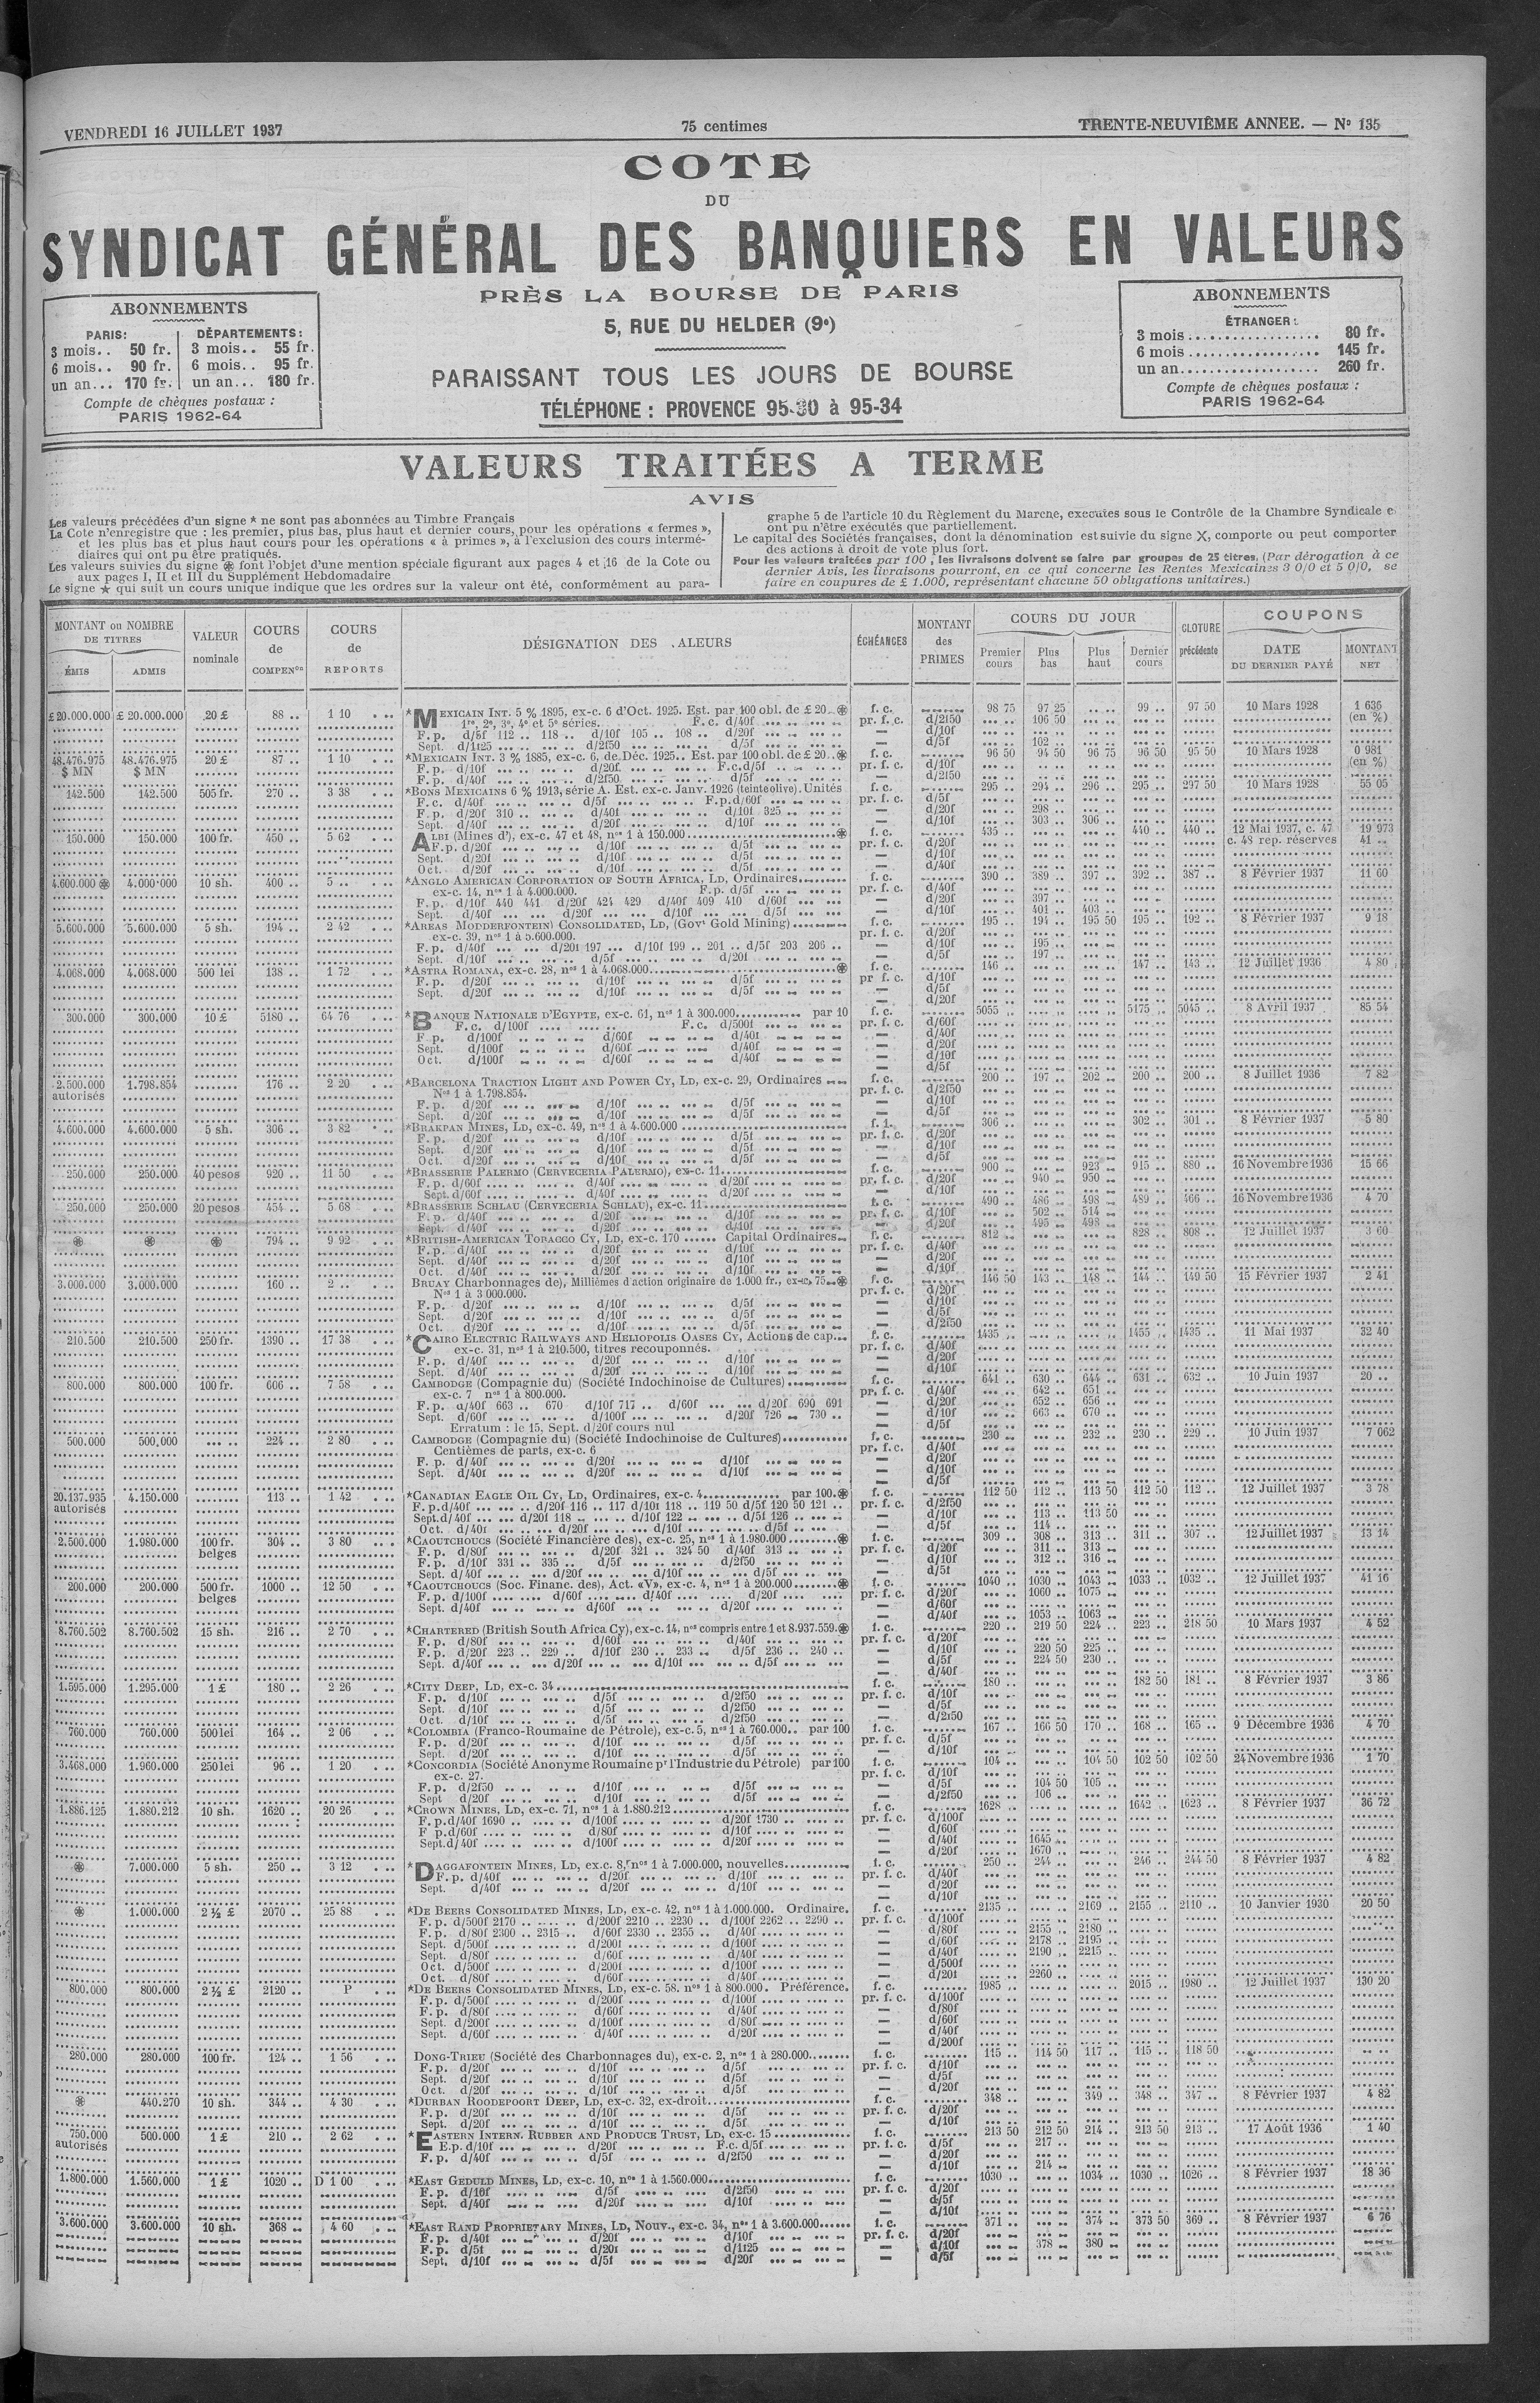 VENDREDI 16 JUILLET 1937
75 centimes
TRENTE-NEUVIÈME ANNEE. — Nº 135
COTE
DU
SYNDICAT GÉNÉRAL DES BANQUIERS EN VALEURS
PRÈS LA BOURSE DE PARIS
5, RUE DU HELDER (9e)
PARAISSANT TOUS LES JOURS DE BOURSE
TÉLÉPHONE : PROVENCE 95-30 à 95-34
ABONNEMENTS
PARIS: DÉPARTEMENTS:
3 mois.. 50 fr. 3 mois.. 55 fr.
6 mois.. 90 fr. 6 mois.. 95 fr.
un an... 170 fr. un an... 180 fr.
Compte de chèques postaux :
PARIS 1962-64
ABONNEMENTS
ÉTRANGER :
3 mois ................ 80 fr.
6 mois ................ 145 fr.
un an.................. 260 fr.
Compte de chèques postaux :
PARIS 1962-64
VALEURS TRAITÉES A TERME
AVIS
Les valeurs précédées d'un signe * ne sont pas abonnées au Timbre Français
La Cote n'enregistre que : les premier, plus bas, plus haut et dernier cours, pour les opérations « fermes »,
et les plus bas et plus haut cours pour les opérations « à primes », à l'exclusion des cours intermé-
diaires qui ont pu être pratiqués.
Les valeurs suivies du signe ⊛ font l'objet d'une mention spéciale figurant aux pages 4 et 16 de la Cote ou
aux pages I, II et III du Supplément Hebdomadaire
Le signe ★ qui suit un cours unique indique que les ordres sur la valeur ont été, conformément au para-
graphe 5 de l'article 10 du Règlement du Marche, executes sous le Contrôle de la Chambre Syndicale
ont pu n'être exécutés que partiellement.
Le capital des Sociétés françaises, dont la dénomination est suivie du signe X, comporte ou peut comporter
des actions à droit de vote plus fort.
Pour les valeurs traitées par 100, les livraisons doivent se faire par groupes de 25 titres, (Par dérogation à ce
dernier Avis, les livraisons pourront, en ce qui concerne les Rentes Mexicaines 3 0/0 et 5 0/0, se
faire en coupures de £ 1.000, représentant chacune 50 obligations unitaires.)
MONTANT ou NOMBRE DE TITRES
ÉMIS ADMIS
VALEUR nominale
COURS de COMPENon
COURS de REPORTS
DÉSIGNATION DES ALEURS
ÉCHÉANCES
MONTANT des PRIMES
COURS DU JOUR
Premier cours Plus bas Plus haut Dernier cours
CLOTURE précédente
COUPONS
DATE DU DERNIER PAYÉ
MONTANT NET
£ 20.000.000 £ 20.000.000 20 £ 88 .. 1 10 *MEXICAIN INT. 5 % 1895, ex-c. 6 d'Oct. 1925. Est. par 100 obl. de £ 20 ⊛ f. c. 98 75 97 25 99 .. 97 50 10 Mars 1928 1 636
1re, 2e, 3e, 4e et 5e séries. F. c. d/40f pr. f. c. d/2f50 106 50 (en %)
F. p. d/5f 112 .. 118 .. d/10f 105 .. 108 .. d/20f — d/10f
Sept. d/1f25 d/2f50 d/5f — d/5f 102 ..
48.476.975 48.476.975 20 £ 87 .. 1 10 *MEXICAIN INT. 3 % 1885, ex-c. 6, de Déc. 1925.. Est. par 100 obl. de £ 20.. ⊛ f. c. 96 50 94 50 96 75 96 50 95 50 10 Mars 1928 0 981
$ MN $ MN F. p. d/10f d/20f F.c.d/5f pr. f. c. d/10f (en %)
F. p. d/40f d/2f50 d/5f — d/2f50
142.500 142.500 505 fr. 270 .. 3 38 *BONS MEXICAINS 6 % 1913, série A. Est. ex-c. Janv. 1926 (teinte olive). Unités f. c. 295 .. 294 .. 296 .. 295 .. 297 50 10 Mars 1928 55 05
F. c. d/40f d/5f F.p.d/60f pr. f. c. d/5f
F. p. d/20f 310 .. d/40f d/10f 325 .. — d/20f 298 ..
Sept. d/40f d/20f d/10f — d/10f 303 .. 306 ..
150.000 150.000 100 fr. 450 .. 5 62 ALBI (Mines d'), ex-c. 47 et 48, nos 1 à 150.000 ⊛ f. c. 435 .. 440 .. 440 .. 12 Mai 1937, c. 47 19 973
F. p. d/20f d/10f d/5f pr. f. c. d/20f c. 48 rep. réserves 41 ..
Sept. d/20f d/10f d/5f — d/10f
Oct. d/20f d/10f d/5f — d/40f
4.600.000 ⊛ 4.000.000 10 sh. 400 .. 5 .. *ANGLO AMERICAN CORPORATION OF SOUTH AFRICA, LD, Ordinaires f. c. 390 .. 389 .. 397 .. 392 .. 387 .. 8 Février 1937 11 60
ex-c. 14, nos 1 à 4.000.000. F.p. d/5f pr. f. c. d/40f
F. p. d/10f 440 441 d/20f 424 429 d/40f 409 410 d/60f — d/20f 397 ..
Sept. d/40f d/20f d/10f d/5f — d/10f 401 .. 403 ..
5.600.000 5.600.000 5 sh. 194 .. 2 42 *AREAS MODDERFONTEIN CONSOLIDATED, LD, (Govt Gold Mining) f. c. 195 .. 194 .. 195 50 195 .. 192 .. 8 Février 1937 9 18
ex-c. 39, nos 1 à 5.600.000. pr. f. c. d/20f
F. p. d/40f d/20f 197 ... d/10f 199 .. 201 .. d/5f 203 206 .. — d/10f 195 ..
Sept. d/10f d/5f d/20f — d/5f 197 ..
4.068.000 4.068.000 500 lei 138 .. 1 72 *ASTRA ROMANA, ex-c. 28, nos 1 à 4.068.000 ⊛ f. c. 146 .. 147 .. 143 .. 12 Juillet 1936 4 80
F. p. d/20f d/10f d/5f pr f. c. d/10f
Sept. d/20f d/10f d/5f — d/5f
— d/20f
300.000 300.000 10 £ 5180 .. 64 76 *BANQUE NATIONALE D'EGYPTE, ex-c. 61, nos 1 à 300.000 par 10 f. c. 5055 .. 5175 .. 5045 .. 8 Avril 1937 85 54
F. c. d/100f F. c. d/500f pr. f. c. d/60f
F p. d/100f d/60f d/40f — d/40f
Sept. d/100f d/60f d/40f — d/20f
Oct. d/100f d/60f d/40f — d/10f
— d/5f
2.500.000 1.798.854 176 .. 2 20 *BARCELONA TRACTION LIGHT AND POWER CY, LD, ex-c. 29, Ordinaires f. c. 200 .. 197 .. 202 .. 200 .. 200 .. 8 Juillet 1936 7 82
autorisés Nos 1 à 1.798.854. pr. f. c. d/2f50
F. p. d/20f d/10f d/5f — d/10f
Sept. d/20f d/10f d/5f — d/5f
4.600.000 4.600.000 5 sh. 306 .. 3 82 *BRAKPAN MINES, LD, ex-c. 49, nos 1 à 4.600.000 306 .. 302 .. 301 .. 8 Février 1937 5 80
F. p. d/20f d/10f d/5f pr. f. c. d/20f
Sept. d/20f d/10f d/5f — d/10f
Oct. d/20f d/10f d/5f — d/5f
250.000 250.000 40 pesos 920 .. 11 50 *BRASSERIE PALERMO (CERVECERIA PALERMO), ex-c. 11 f. c. 900 .. 923 .. 915 .. 880 .. 16 Novembre 1936 15 66
F. p. d/60f d/40f d/20f pr. f. c. d/20f 940 .. 950 ..
Sept. d/60f d/40f d/20f — d/10f
250.000 250.000 20 pesos 454 .. 5 68 *BRASSERIE SCHLAU (CERVECERIA SCHLAU), ex-c. 11 f. c. 490 .. 486 .. 498 .. 489 .. 466 .. 16 Novembre 1936 4 70
F. p. d/40f d/20f d/10f pr. f. c. d/10f 502 .. 514 ..
Sept. d/40f d/20f d/10f — d/20f 495 .. 498 ..
⊛ ⊛ ⊛ 794 .. 9 92 *BRITISH-AMERICAN TOBACCO CY, LD, ex-c. 170 ...... Capital Ordinaires f. c. 812 .. 828 .. 808 .. 12 Juillet 1937 3 60
F. p. d/40f d/20f d/10f pr. f. c. d/40f
Sept. d/40f d/20f d/10f — d/20f
Oct. d/40f d/20f d/10f — d/10f
3.000.000 3.000.000 160 .. 2 .. BRUAY Charbonnages de), Millièmes d'action originaire de 1.000 fr., ex-c. 75 ⊛ f. c. 146 50 143 .. 148 .. 144 .. 149 50 15 Février 1937 2 41
Nos 1 à 3 000.000. pr. f. c. d/20f
F. p. d/20f d/10f d/5f — d/10f
Sept. d/20f d/10f d/5f — d/5f
Oct. d/20f d/10f d/5f — d/2f50
210.500 210.500 250 fr. 1390 .. 17 38 *CAIRO ELECTRIC RAILWAYS AND HELIOPOLIS OASES CY, Actions de cap... f. c. 1435 .. 1455 .. 1435 .. 11 Mai 1937 32 40
ex-c. 31, nos 1 à 210.500, titres recouponnés. pr. f. c. d/40f
F. p. d/40f d/20f d/10f — d/20f
Sept. d/40f d/20f d/10f — d/10f
800.000 800.000 100 fr. 606 .. 7 58 CAMBODGE (Compagnie du) (Société Indochinoise de Cultures) f. c. 641 .. 630 .. 644 .. 631 .. 632 .. 10 Juin 1937 20 ..
ex-c. 7 nos 1 à 800.000. pr. f. c. d/40f 642 .. 651 ..
F. p. d/40f 663 .. 670 d/10f 717 .. d/60f d/20f 690 691 — d/20f 652 .. 656 ..
Sept. d/60f d/100f d/20f 726 .. 730 .. — d/10f 663 .. 670 ..
Erratum : le 15, Sept. d/20f cours nul — d/5f
500.000 500.000 224 .. 2 80 CAMBODGE (Compagnie du) (Société Indochinoise de Cultures) f. c. 230 .. 232 .. 230 .. 229 .. 10 Juin 1937 7 062
Centièmes de parts, ex-c. 6 pr. f. c. d/40f
F. p. d/40f d/20f d/10f — d/20f
Sept. d/40f d/20f d/10f — d/10f
— d/5f
20.137.935 4.150.000 113 .. 1 42 *CANADIAN EAGLE OIL CY, LD, Ordinaires, ex-c. 4 par 100. ⊛ f. c. 112 50 112 .. 113 50 112 50 112 .. 12 Juillet 1937 3 78
autorisés F. p. d/40f d/20f 116 .. 117 d/10f 118 .. 119 50 d/5f 120 50 121 .. pr. f. c. d/2f50
Sept. d/40f d/20f 118 .. d/10f 122 d/5f 126 — d/10f 113 .. 113 50
Oct. d/40f d/20f d/10f d/5f — d/5f 114 ..
2.500.000 1.980.000 100 fr. 304 .. 3 80 *CAOUTCHOUCS (Société Financière des), ex-c. 25, nos 1 à 1.980.000 ⊛ f. c. 309 .. 308 .. 313 .. 311 .. 307 .. 12 Juillet 1937 13 14
belges F. p. d/80f d/20f 321 .. 324 50 d/40f 313 .. pr. f. c. d/20f 311 .. 313 ..
F. p. d/10f 331 .. 335 .. d/5f d/2f50 — d/10f 312 .. 316 ..
Sept. d/40f d/20f d/10f d/5f — d/5f
200.000 200.000 500 fr. 1000 .. 12 50 *CAOUTCHOUCS (Soc. Financ. des), Act. «V», ex-c. 4, nos 1 à 200.000 ⊛ f. c. 1040 .. 1030 .. 1043 .. 1033 .. 1032 .. 12 Juillet 1937 41 16
belges F. p. d/100f d/60f d/40f d/20f pr. f. c. d/20f 1060 .. 1075 ..
Sept. d/40f d/60f d/20f — d/60f
— d/40f 1053 .. 1063 ..
8.760.502 8.760.502 15 sh. 216 .. 2 70 *CHARTERED (British South Africa Cy), ex-c. 14, nos compris entre 1 et 8.937.559. ⊛ f. c. 220 .. 219 50 224 .. 223 .. 218 50 10 Mars 1937 4 52
F. p. d/80f d/60f d/40f pr. f. c. d/20f
F. p. d/20f 223 .. 229 .. d/10f 230 .. 233 .. d/5f 236 .. 240 .. — d/10f 220 50 225 ..
Sept. d/40f d/20f d/10f d/5f — d/5f 224 50 230 ..
— d/40f
1.595.000 1.295.000 1 £ 180 .. 2 26 *CITY DEEP, LD, ex-c. 34 f. c. 180 .. 182 50 181 .. 8 Février 1937 3 86
F. p. d/10f d/5f d/2f50 pr. f. c. d/10f
Sept. d/10f d/5f d/2f50 — d/5f
Oct. d/10f d/5f d/2f50 — d/2f50
760.000 760.000 500 lei 164 .. 2 06 *COLOMBIA (Franco-Roumaine de Pétrole), ex-c. 5, nos 1 à 760.000.. par 100 f. c. 167 .. 166 50 170 .. 168 .. 165 .. 9 Décembre 1936 4 70
F. p. d/20f d/10f d/5f pr. f. c. d/5f
Sept. d/20f d/10f d/5f — d/10f
3.468.000 1.960.000 250 lei 96 .. 1 20 *CONCORDIA (Société Anonyme Roumaine pr l'Industrie du Pétrole) par 100 f. c. 104 .. 104 50 102 50 102 50 24 Novembre 1936 1 70
ex-c. 27. pr. f. c. d/10f
F. p. d/2f50 d/10f d/5f — d/5f 104 50 105 ..
Sept d/20f d/10f d/5f — d/2f50 106 ..
1.886.125 1.880.212 10 sh. 1620 .. 20 26 *CROWN MINES, LD, ex-c. 71, nos 1 à 1.880.212 f. c. 1628 .. 1642 .. 1623 .. 8 Février 1937 36 72
F. p. d/40f 1690 .. d/100f d/20f 1730 .. pr. f. c. d/100f
F. p. d/60f d/80f d/10f — d/60f
Sept. d/40f d/100f d/20f — d/40f 1645 ..
— d/20f 1670 ..
⊛ 7.000.000 5 sh. 250 .. 3 12 *DAGGAFONTEIN MINES, LD, ex.c. 8, nos 1 à 7.000.000, nouvelles f. c. 250 .. 244 .. 246 .. 244 50 8 Février 1937 4 82
F. p. d/40f d/20f d/10f pr. f. c. d/40f
Sept. d/40f d/20f d/10f — d/20f
— d/10f
⊛ 1.000.000 2 ½ £ 2070 .. 25 88 *DE BEERS CONSOLIDATED MINES, LD, ex-c. 42, nos 1 à 1.000.000. Ordinaire. f. c. 2135 .. 2169 .. 2155 .. 2110 .. 10 Janvier 1930 20 50
F. p. d/500f 2170 .. d/200f 2210 .. 2230 .. d/100f 2262 .. 2290 .. pr. f. c. d/100f
F. p. d/80f 2300 .. 2315 .. d/60f 2330 .. 2355 .. d/40f — d/80f 2155 .. 2180 ..
Sept. d/500f d/200f d/100f — d/60f 2178 .. 2195 ..
Sept. d/80f d/60f d/40f — d/40f 2190 .. 2215 ..
Oct. d/500f d/200f d/100f — d/500f
Oct. d/80f d/60f d/40f — d/20f 2260 ..
800.000 800.000 2 ½ £ 2120 .. P *DE BEERS CONSOLIDATED MINES, LD, ex-c. 58. nos 1 à 800.000. Préférence. f. c. 1985 .. 2015 .. 1980 .. 12 Juillet 1937 130 20
F. p. d/500f d/200f d/100f pr. f. c. d/100f
F. p. d/80f d/60f d/40f — d/80f
Sept. d/200f d/100f d/80f — d/60f
Sept. d/60f d/40f d/20f — d/40f
— d/200f
280.000 280.000 100 fr. 124 .. 1 56 DONG-TRIEU (Société des Charbonnages du), ex-c. 2, nos 1 à 280.000 f. c. 115 .. 114 50 117 .. 115 .. 118 50
F. p. d/20f d/10f d/5f pr. f. c. d/10f
Sept. d/20f d/10f d/5f — d/5f
Oct. d/20f d/10f d/5f — d/20f
⊛ 440.270 10 sh. 344 .. 4 30 *DURBAN ROODEPOORT DEEP, LD, ex-c. 32, ex-droit f. c. 348 .. 349 .. 348 .. 347 .. 8 Février 1937 4 82
F. p. d/20f d/10f d/5f pr. f. c. d/20f
Sept. d/20f d/10f d/5f — d/10f
750.000 500.000 1 £ 210 .. 2 62 *EASTERN INTERN. RUBBER AND PRODUCE TRUST, LD, ex-c. 15 f. c. 213 50 212 50 214 .. 213 50 213 .. 17 Août 1936 1 40
autorisés E.p. d/10f d/20f F.c. d/5f pr. f. c. d/5f 217 ..
F. p. d/40f d/5f d/2f50 — d/20f
— d/10f 214 ..
1.800.000 1.560.000 1 £ 1020 .. D 1 00 *EAST GEDULD MINES, LD, ex-c. 10, nos 1 à 1.560.000 f. c. 1030 .. 1034 .. 1030 .. 1026 .. 8 Février 1937 18 36
F. p. d/10f d/5f d/2f50 pr. f. c. d/20f
Sept. d/40f d/20f d/10f — d/5f
— d/10f
3.600.000 3.600.000 10 sh. 368 .. 4 60 *EAST RAND PROPRIETARY MINES, LD, Nouv., ex-c. 34, nos 1 à 3.600.000 f. c. 371 .. 374 .. 373 50 369 .. 8 Février 1937 6 76
F. p. d/40f d/20f d/10f pr. f. c. d/20f
F. p. d/5f d/20f d/1f25 — d/10f 378 .. 380 ..
Sept. d/10f d/5f d/20f — d/5f